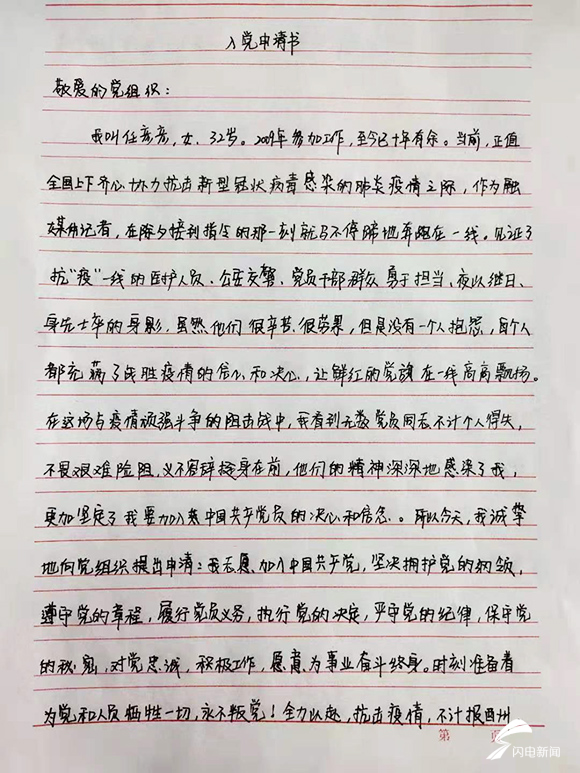 入党申请书
敬爱的党组织：
我叫任彦彦，女、32岁。2009年参加工作，至今已十年有余。当前，正值
全国上下齐心协力抗击新型冠状病毒感染的肺炎疫情之际，作为融
媒体记者，在除夕接到指令的那一刻就马不停蹄地奔跑在一线。见证了
抗“疫”一线的医护人员、公安交警、党员干部群众勇于担当、夜以继日、
身先士卒的身影，虽然他们很辛苦、很劳累，但是没有一个人抱怨，每个人
都充满了战胜疫情的信心和决心，让鲜红的党旗在一线高高飘扬。
在这场与疫情顽强斗争的阻击战中，我看到无数党员同志不计个人得失，
不畏艰难险阻，义不容辞挺身在前，他们的精神深深地感染了我，
更加坚定了我要加入中国共产党员的决心和信念。所以今天，我诚挚
地向党组织提出申请：我志愿加入中国共产党，坚决拥护党的纲领，
遵守党的章程，履行党员义务，执行党的决定，严守党的纪律，保守党
的秘密，对党忠诚，积极工作，愿意为事业奋斗终身。时刻准备着
为党和人民牺牲一切，永不叛党！全力以赴，抗击疫情，不计报酬
第 页
闪电新闻